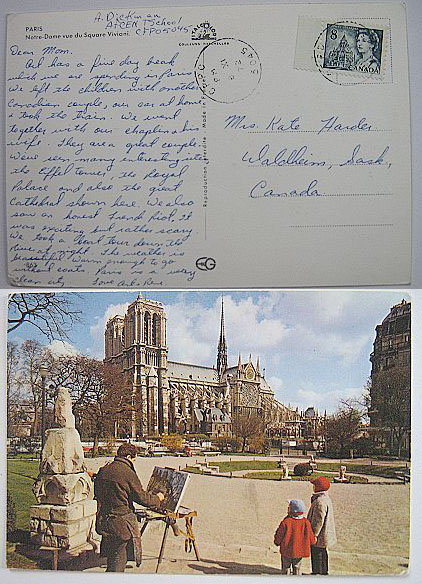 A. Dickman
AFCENT School
CFPO 5045
PARIS
Notre-Dame vue du Square Viviani.
COULEURS NATURELLES
CFPO
5045
8
CANADA
Dear Mom.
Art has a five day break
which we are spending in Paris
We left the children with another
Canadian couple, our car at home
& took the train. We went
together with our chaplain & his
wife. They are a great couple.
We've seen many interesting
the Eiffel tower, the Royal
Palace and also the great
Cathedral shown here. We also
saw an honest French riot. It
was exciting but rather scary
We took a boat tour down the
River at night. The weather is
beautiful & warm enough to go
without coats. Paris is a very
clean city. Love Art &
Mrs. Kate Harder
Waldheim, Sask.
Canada